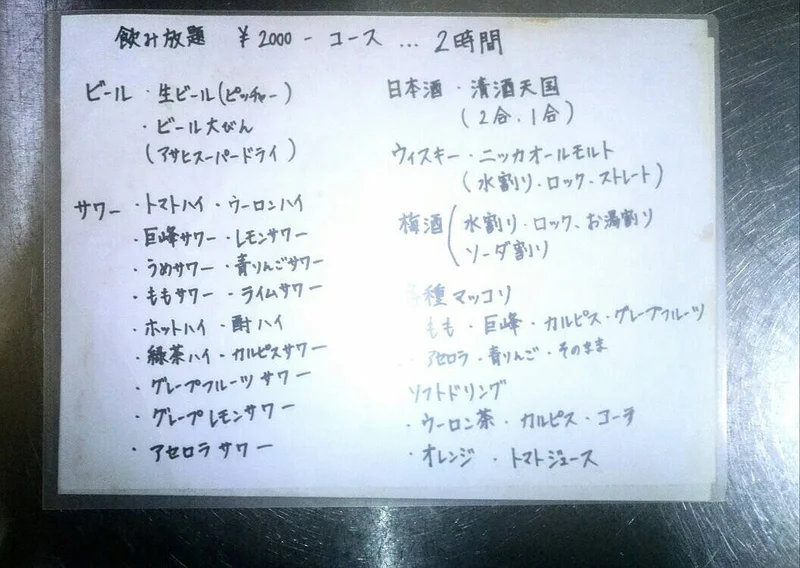 飲み放題 ¥2000- コース … 2時間
ビール ・生ビール(ピッチャー)
・ビール大びん
(アサヒスーパードライ)
サワー ・トマトハイ ・ウーロンハイ
・巨峰サワー ・レモンサワー
・うめサワー ・青りんごサワー
・ももサワー ・ライムサワー
・ホットハイ ・酎ハイ
・緑茶ハイ ・カルピスサワー
・グレープフルーツサワー
・グレープレモンサワー
・アセロラサワー
日本酒 ・清酒天国
(2合、1合)
ウィスキー ・ニッカオールモルト
(水割り・ロック、ストレート)
梅酒 (水割り・ロック、お湯割り
ソーダ割り
各種マッコリ
もも ・巨峰 ・カルピス ・グレープフルーツ
・アセロラ ・青りんご ・そのまま
ソフトドリング
・ウーロン茶 ・カルピス ・コーラ
・オレンジ ・トマトジュース